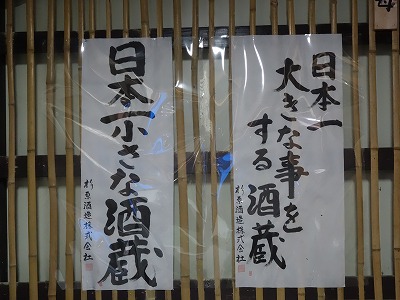 日本一
大きな事を
する酒蔵
杉原酒造株式会社
日本一小さな酒蔵
杉原酒造株式会社